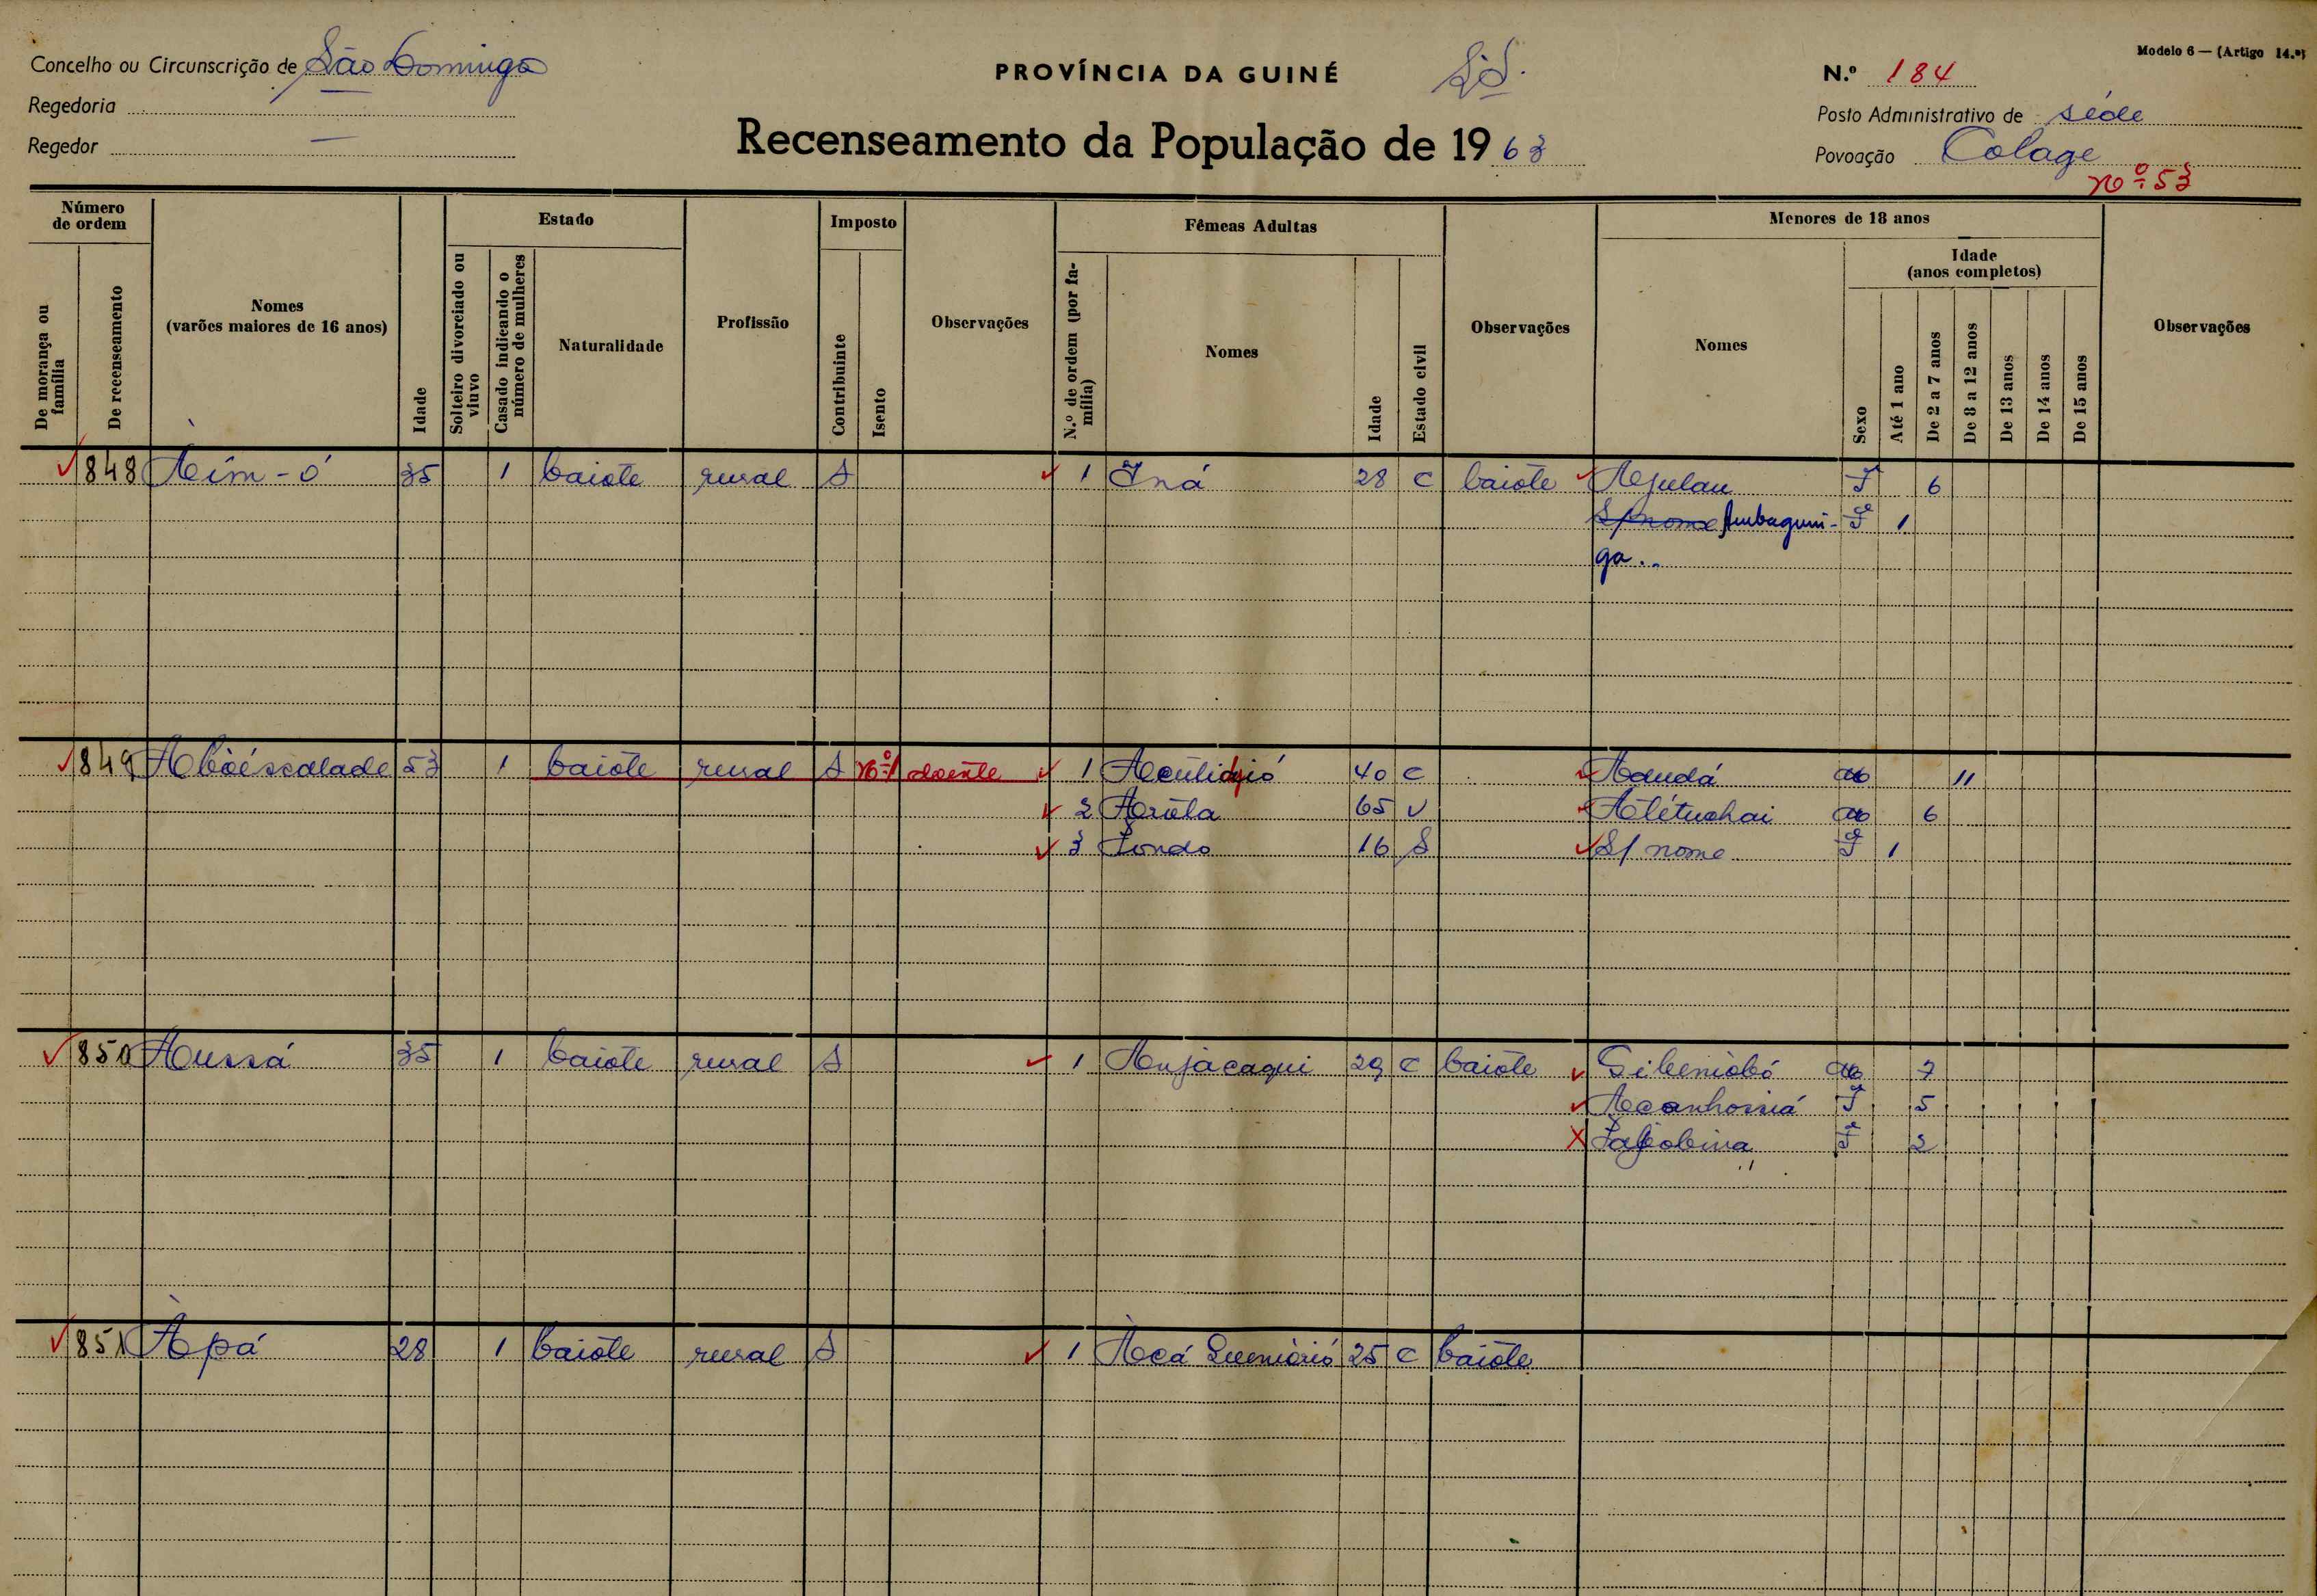 Modelo 6 — (Artigo 14.º)
Concelho ou Circunscrição de São Domingos
PROVÍNCIA DA GUINÉ
N.º 184
Regedoria
Posto Administrativo de séde
Regedor —
Recenseamento da População de 1963
Povoação Colage
Nº 53
Número de ordem
Estado
Imposto
Fêmeas Adultas
Menores de 18 anos
De morança ou família
De recenseamento
Nomes (varões maiores de 16 anos)
Idade
Solteiro divorciado ou viuvo
Casado indicando o número de mulheres
Naturalidade
Profissão
Contribuinte
Isento
Observações
N.º de ordem (por família)
Nomes
Idade
Estado civil
Observações
Nomes
Sexo
Idade (anos completos)
Até 1 ano
De 2 a 7 anos
De 8 a 12 anos
De 13 anos
De 14 anos
De 15 anos
Observações
848 Aim-ó 35 1 baiote rural S 1 Iná 28 C baiote Aejulau F 6
S/nome Ambaguni- F 1
ga..
849 53 1 baiote rural S nº1 doente 1 40 C Aaudá M 11
2 Aruta 65 V Alétuchai M 6
3 Fondo 16 S S/ nome F 1
850 Aussá 35 1 baiote rural S 1 Aujacaqui 29 C baiote M 7
F 5
F 2
851 Àpá 28 1 baiote rural S 1 Àcá 25 C baiote